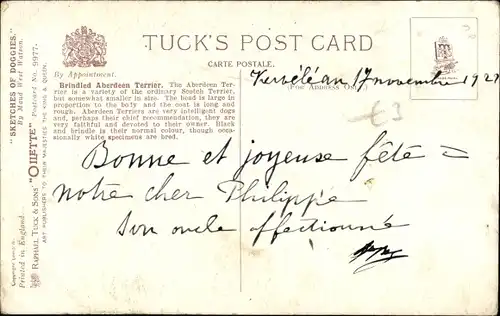 TUCK'S POST CARD
CARTE POSTALE.
By Appointment.
(For Address Only)
Brindled Aberdeen Terrier. The Aberdeen Ter-
rier is a variety of the ordinary Scotch Terrier,
but somewhat smaller in size. The head is large in
proportion to the body and the coat is long and
rough. Aberdeen Terriers are very intelligent dogs
and, perhaps their chief recommendation, they are
very faithful and devoted to their owner. Black
and brindle is their normal colour, though occa-
sionally white specimens are bred.
17 novembre 1927
£3
Bonne et joyeuse fête =
notre cher Philippe
Son oncle affectionné
"SKETCHES OF DOGGIES."
By Maud West Watson.
"OILETTE" Postcard No. 9977.
RAPHAEL TUCK & SONS
ART PUBLISHERS TO THEIR MAJESTIES THE KING & QUEEN.
Printed in England.